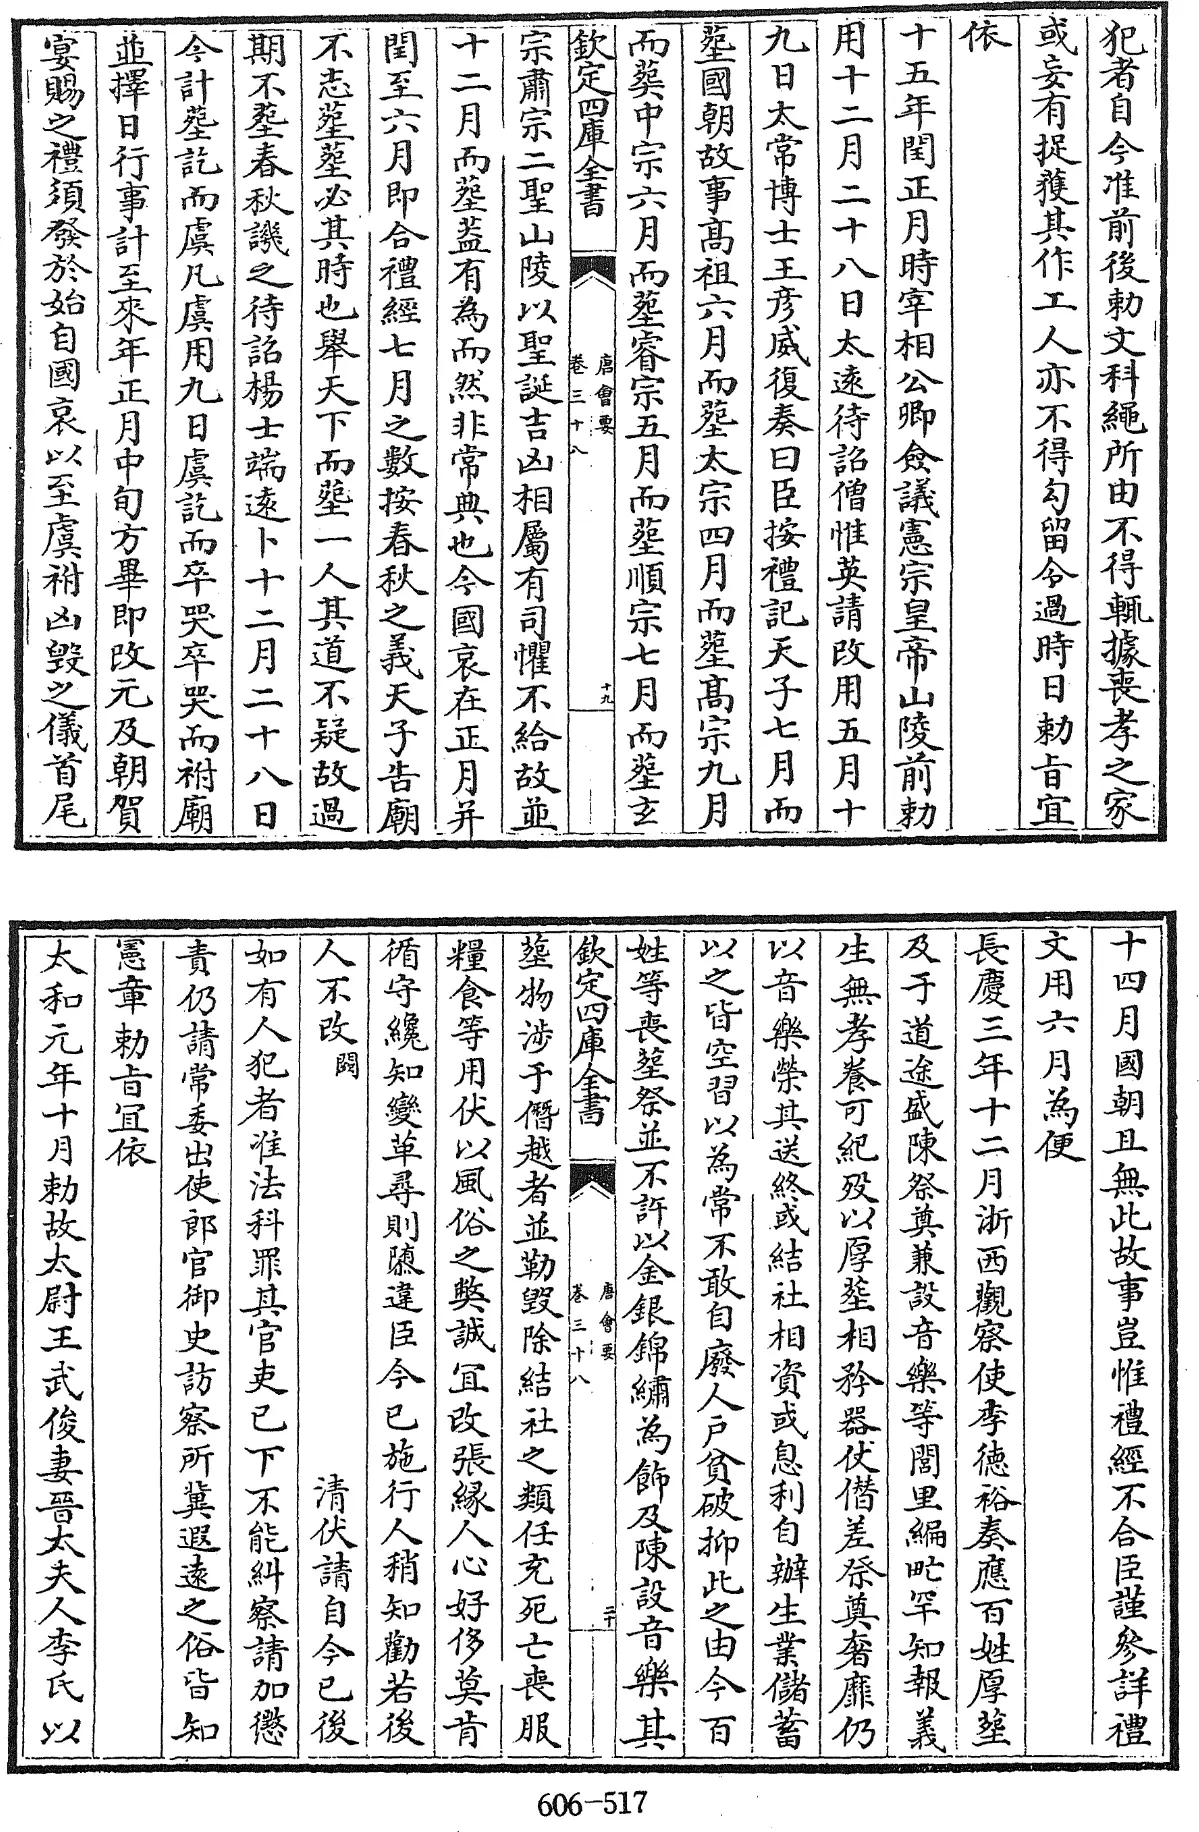 犯者自今准前後勅文科繩所由不得輒據喪孝之家
或妄有捉獲其作工人亦不得勾留令過時日勅旨宜
依
十五年閏正月時宰相公卿僉議憲宗皇帝山陵前勅
用十二月二十八日太遠待詔僧惟英請改用五月十
九日太常博士王彦威復奏曰臣按禮記天子七月而
塟國朝故事髙祖六月而塟太宗四月而塟髙宗九月
而葬中宗六月而塟睿宗五月而塟順宗七月而塟玄
欽定四庫全書
唐會要
卷三十八
十九
宗肅宗二聖山陵以聖誕吉凶相屬有司懼不給故並
十二月而塟蓋有為而然非常典也今國哀在正月并
閏至六月即合禮經七月之數按春秋之義天子告廟
不志塟塟必其時也舉天下而塟一人其道不疑故過
期不塟春秋譏之待詔楊士端遠卜十二月二十八日
今計塟訖而虞凡虞用九日虞訖而卒哭卒哭而祔廟
並擇日行事計至來年正月中旬方畢即改元及朝賀
宴賜之禮須發於始自國哀以至虞祔凶毀之儀首尾
十四月國朝且無此故事豈惟禮經不合臣謹參詳禮
文用六月為便
長慶三年十二月浙西觀察使李德裕奏應百姓厚塟
及于道途盛陳祭奠兼設音樂等閭里編甿罕知報義
生無孝養可紀殁以厚塟相矜器仗僭差祭奠奢靡仍
以音樂榮其送終或結社相資或息利自辦生業儲蓄
以之皆空習以為常不敢自廢人戸貧破抑此之由今百
姓等喪塟祭並不許以金銀錦繡為飾及陳設音樂其
欽定四庫全書
唐會要
卷三十八
二十
塟物涉于僭越者並勒毀除結社之類任充死亡喪服
糧食等用伏以風俗之獘誠宜改張緣人心好侈莫肯
循守纔知變革尋則隳違臣今已施行人稍知勸若後
人不改闕　清伏請自今已後
如有人犯者准法科罪其官吏已下不能糾察請加懲
責仍請常委出使郎官御史訪察所冀遐遠之俗皆知
憲章勅旨宜依
太和元年十月勅故太尉王武俊妻晉太夫人李氏以
606-517